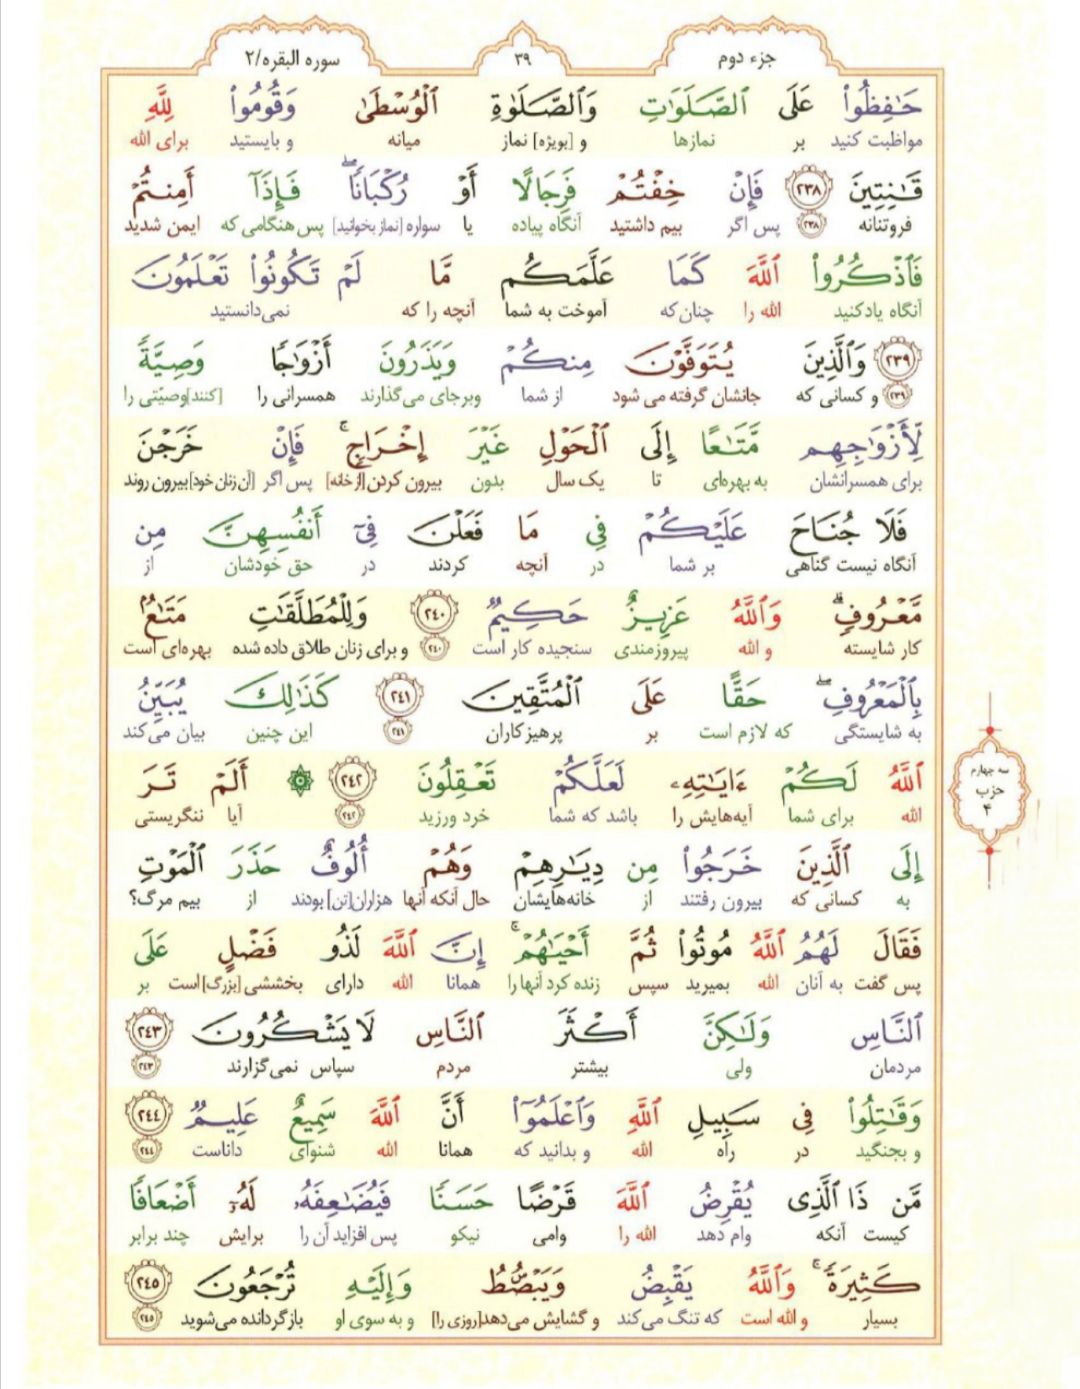 جزء دوم
۳۹
سوره البقره/۲
حَٰفِظُوا۟ عَلَى ٱلصَّلَوَٰتِ وَٱلصَّلَوٰةِ ٱلْوُسْطَىٰ وَقُومُوا۟ لِلَّهِ
مواظبت کنید بر نمازها و [بویژه] نماز میانه و بایستید برای الله
قَٰنِتِينَ ﴿٢٣٨﴾ فَإِنْ خِفْتُمْ فَرِجَالًا أَوْ رُكْبَانًا ۖ فَإِذَآ أَمِنتُمْ
فروتنانه ﴿۲۳۸﴾ پس اگر بیم داشتید آنگاه پیاده یا سواره [نماز بخوانید] پس هنگامی که ایمن شدید
فَٱذْكُرُوا۟ ٱللَّهَ كَمَا عَلَّمَكُم مَّا لَمْ تَكُونُوا۟ تَعْلَمُونَ
آنگاه یاد کنید الله را چنان که آموخت به شما آنچه را که نمی‌دانستید
﴿٢٣٩﴾ وَٱلَّذِينَ يُتَوَفَّوْنَ مِنكُمْ وَيَذَرُونَ أَزْوَٰجًا وَصِيَّةً
﴿۲۳۹﴾ و کسانی که جانشان گرفته می شود از شما وبرجای می‌گذارند همسرانی را [کنند]وصیّتی را
لِّأَزْوَٰجِهِم مَّتَٰعًا إِلَى ٱلْحَوْلِ غَيْرَ إِخْرَاجٍ ۚ فَإِنْ خَرَجْنَ
برای همسرانشان به بهره‌ای تا یک سال بدون بیرون کردن[از خانه] پس اگر [آن زنان خود]بیرون روند
فَلَا جُنَاحَ عَلَيْكُمْ فِى مَا فَعَلْنَ فِىٓ أَنفُسِهِنَّ مِن
آنگاه نیست گناهی بر شما در آنچه کردند در حق خودشان از
مَّعْرُوفٍ ۗ وَٱللَّهُ عَزِيزٌ حَكِيمٌ ﴿٢٤٠﴾ وَلِلْمُطَلَّقَٰتِ مَتَٰعٌۢ
کار شایسته و الله پیروزمندی سنجیده کار است ﴿۲۴۰﴾ و برای زنان طلاق داده شده بهره‌ای است
بِٱلْمَعْرُوفِ ۖ حَقًّا عَلَى ٱلْمُتَّقِينَ ﴿٢٤١﴾ كَذَٰلِكَ يُبَيِّنُ
به شایستگی که لازم است بر پرهیزکاران ﴿۲۴۱﴾ این چنین بیان می‌کند
ٱللَّهُ لَكُمْ ءَايَٰتِهِۦ لَعَلَّكُمْ تَعْقِلُونَ ﴿٢٤٢﴾ ۞ أَلَمْ تَرَ
الله برای شما آیه‌هایش را باشد که شما خرد ورزید ﴿۲۴۲﴾ آیا ننگریستی
إِلَى ٱلَّذِينَ خَرَجُوا۟ مِن دِيَٰرِهِمْ وَهُمْ أُلُوفٌ حَذَرَ ٱلْمَوْتِ
به کسانی که بیرون رفتند از خانه‌هایشان حال آنکه آنها هزاران[تن] بودند از بیم مرگ؟
فَقَالَ لَهُمُ ٱللَّهُ مُوتُوا۟ ثُمَّ أَحْيَٰهُمْ ۚ إِنَّ ٱللَّهَ لَذُو فَضْلٍ عَلَى
پس گفت به آنان الله بمیرید سپس زنده کرد آنها را همانا الله دارای بخششی [بزرگ] است بر
ٱلنَّاسِ وَلَٰكِنَّ أَكْثَرَ ٱلنَّاسِ لَا يَشْكُرُونَ ﴿٢٤٣﴾
مردمان ولی بیشتر مردم سپاس نمی‌گزارند ﴿۲۴۳﴾
وَقَٰتِلُوا۟ فِى سَبِيلِ ٱللَّهِ وَٱعْلَمُوٓا۟ أَنَّ ٱللَّهَ سَمِيعٌ عَلِيمٌ ﴿٢٤٤﴾
و بجنگید در راه الله و بدانید که همانا الله شنوای داناست ﴿۲۴۴﴾
مَّن ذَا ٱلَّذِى يُقْرِضُ ٱللَّهَ قَرْضًا حَسَنًا فَيُضَٰعِفَهُۥ لَهُۥٓ أَضْعَافًا
کیست آنکه وام دهد الله را وامی نیکو پس افزاید آن را برایش چند برابر
كَثِيرَةً ۚ وَٱللَّهُ يَقْبِضُ وَيَبْصُۜطُ وَإِلَيْهِ تُرْجَعُونَ ﴿٢٤٥﴾
بسیار و الله است که تنگ می‌کند و گشایش می‌دهد[روزی را] و به سوی او بازگردانده می‌شوید ﴿۲۴۵﴾
سه چهارم
حزب
۴